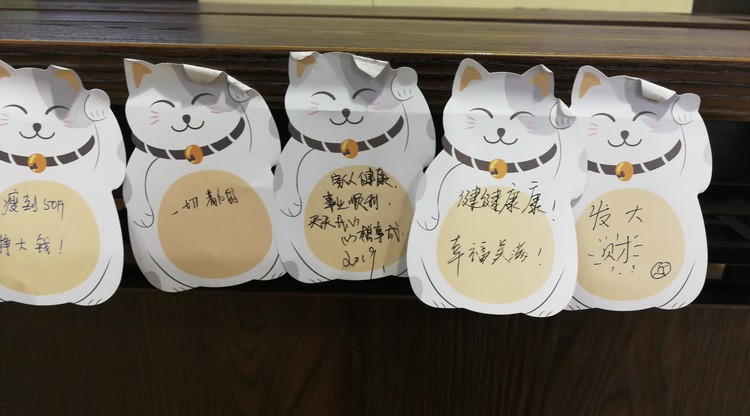 瘦到50斤
挣大钱！
一切都好
家人健康.
事业顺利.
天天开心
心想事成.
2019
健健康康！
幸福美满！
发大
财